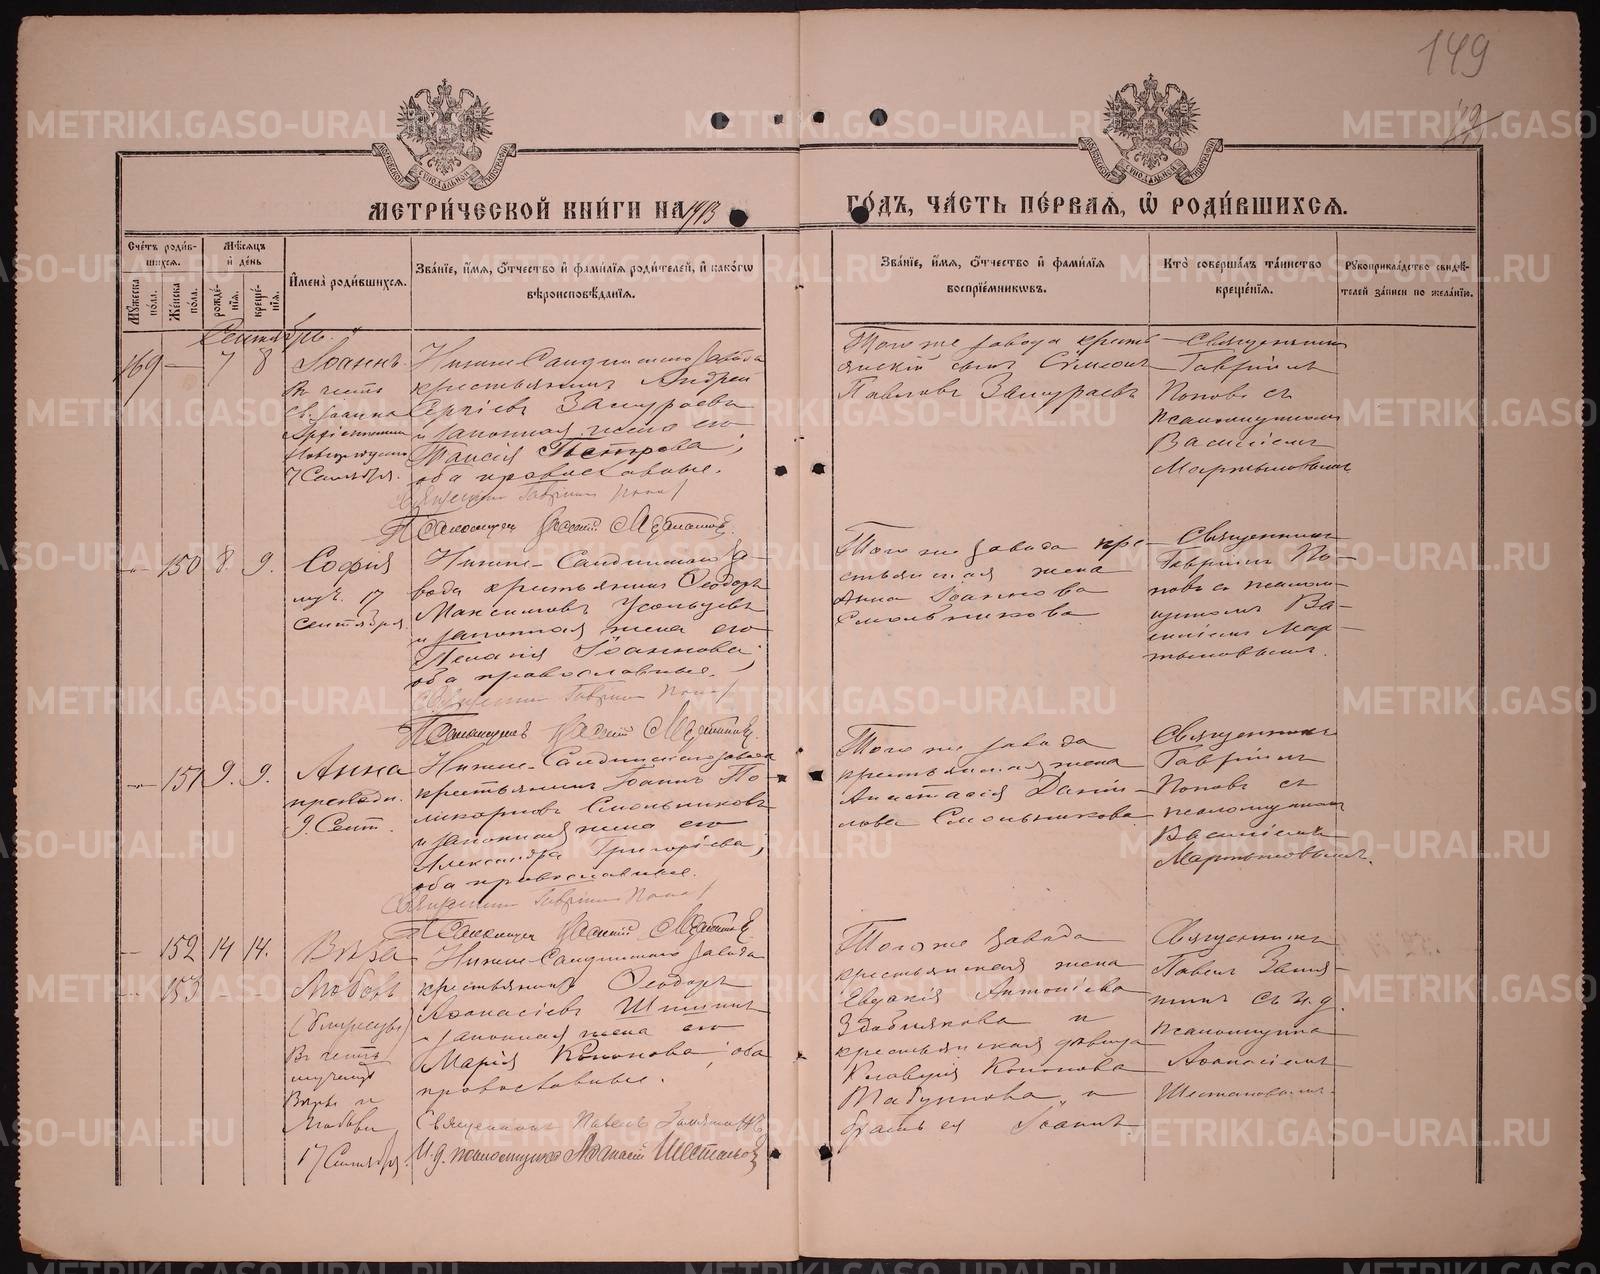 149
МЕТРИ́ЧЕСКОЙ КНИ́ГИ НА 1913
ГО́ДЪ, ЧА́СТЬ ПЕ́РВАЯ, Ѽ РОДИ́ВШИХСЯ.
Сче́тъ роди́в-
шихся.
Му́жеска по́ла.
Же́нска по́ла.
Мѣ́сяцъ
и҆ де́нь
рожде́-
нїя.
креще́-
нїя.
И҆мена̀ роди́вшихся.
Зва́нїе, и҆́мя, ѻ҆́тчество и҆ фами́лїя роди́телей, и҆ како́гѡ
вѣроисповѣ́данїя.
Зва́нїе, и҆́мя, ѻ҆́тчество и҆ фами́лїя
воспрїе́мникѡвъ.
Кто̀ соверша́лъ та́инство
креще́нїя.
Рꙋкоприкла́дство свидѣ́-
телей за́писи по жела́нїю.
Сентябрь.
169 — 7 8 Іоаннъ
Въ честь
Св. Іоанна
Архіепископа
Новгородскаго
7 Сентября.
Нижне-Салдинского завода
крестьянинъ Андрей
Сергіевъ Замураевъ
и законная жена его
Таисія Петрова,
оба православные.
Священникъ Гавріилъ Поповъ
Псаломщикъ Василій Мартыновъ
Того же завода кресть-
янскій сынъ Симеонъ
Павловъ Замураевъ
Священникъ
Гавріилъ
Поповъ съ
псаломщикомъ
Василіемъ
Мартыновымъ
150 8. 9. Софія
муч. 17
Сентября.
Нижне-Салдинскаго за-
вода крестьянинъ Ѳеодоръ
Максимовъ Усольцевъ
и законная жена его
Пелагія Іоаннова,
оба православные.
Священникъ Гавріилъ Поповъ
Псаломщикъ Василій Мартыновъ.
Того же завода кре-
стьянская жена
Анна Іоаннова
Смольникова
Священникъ
Гавріилъ По-
повъ съ псалом-
щикомъ Ва-
силіемъ Мар-
тыновымъ.
151 9. 9. Анна
праведн.
9 Сент.
Нижне-Салдинскаго завода
крестьянинъ Іоаннъ По-
ликарповъ Смольниковъ
и законная жена его
Александра Григоріева,
оба православные.
Священникъ Гавріилъ Поповъ
Псаломщикъ Василій Мартыновъ
Того же завода
крестьянская жена
Анастасія Дании-
лова Смольникова
Священникъ
Гавріилъ
Поповъ съ
псаломщикомъ
Василіемъ
Мартыновымъ.
152 14 14. Вѣра
153 - - Любовь
(близнецы)
Въ честь
мученицъ
Вѣры и
Любови
17 Сентября.
Нижне-Салдинскаго завода
крестьянинъ Ѳеодоръ
Аѳанасіевъ
и законная жена его
Марія Кононова, оба
православные.
Священникъ Павелъ Замятинъ
И. д. псаломщика Аѳанасій Шестаковъ
Того же завода
крестьянская жена
Евдокія Антоніева
Здобнякова и
крестьянская дѣвица
Клавдія Кононова
Табуннова и
братъ ея Іоаннъ
Священникъ
Павелъ Замя-
тинъ съ и. д.
псаломщика
Аѳанасіемъ
Шестаковымъ.
METRIKI.GASO-URAL.RU